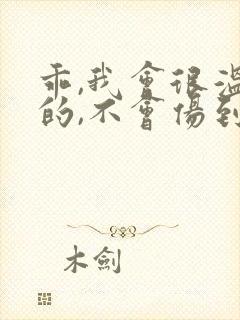 乖,我會很溫
的,不會傷到
木劍